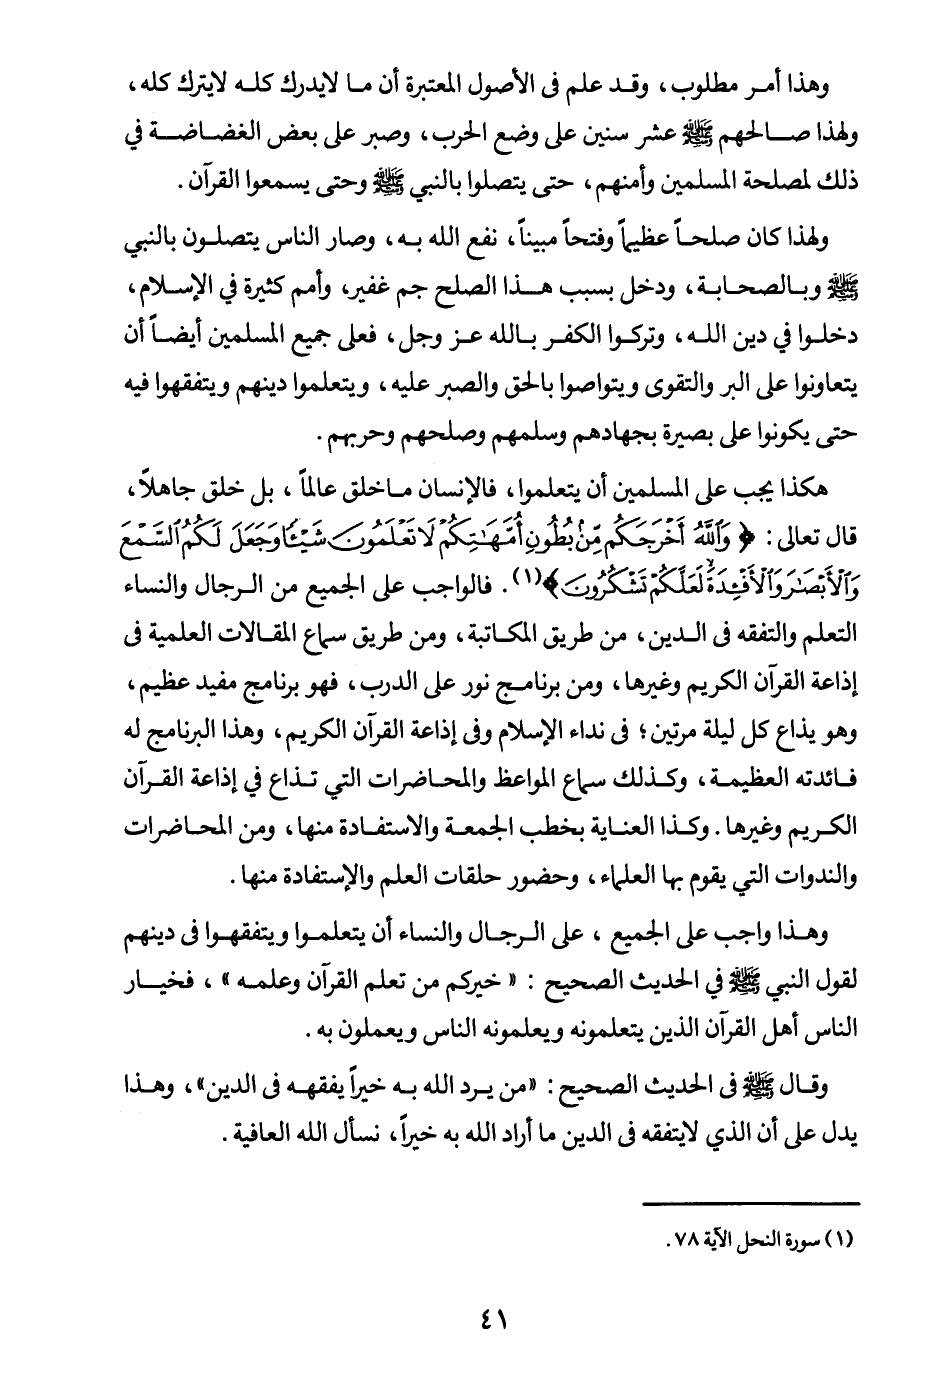 وهذا أمر مطلوب، وقد علم فى الأصول المعتبرة أن ما لايدرك كله لايترك كله،
ولهذا صالحهم ﷺ عشر سنين على وضع الحرب، وصبر على بعض الغضاضة في
ذلك لمصلحة المسلمين وأمنهم، حتى يتصلوا بالنبي ﷺ وحتى يسمعوا القرآن.
ولهذا كان صلحاً عظيماً وفتحاً مبيناً، نفع الله به، وصار الناس يتصلون بالنبي
ﷺ وبالصحابة، ودخل بسبب هذا الصلح جم غفير، وأمم كثيرة في الإسلام،
دخلوا في دين الله، وتركوا الكفر بالله عز وجل، فعلى جميع المسلمين أيضاً أن
يتعاونوا على البر والتقوى ويتواصوا بالحق والصبر عليه، ويتعلموا دينهم ويتفقهوا فيه
حتى يكونوا على بصيرة بجهادهم وسلمهم وصلحهم وحربهم.
هكذا يجب على المسلمين أن يتعلموا، فالإنسان ماخلق عالماً، بل خلق جاهلاً،
قال تعالى: ﴿وَٱللَّهُ أَخْرَجَكُم مِّنۢ بُطُونِ أُمَّهَٰتِكُمْ لَا تَعْلَمُونَ شَيْـًٔا وَجَعَلَ لَكُمُ ٱلسَّمْعَ
وَٱلْأَبْصَٰرَ وَٱلْأَفْـِٔدَةَ ۙ لَعَلَّكُمْ تَشْكُرُونَ﴾(١). فالواجب على الجميع من الرجال والنساء
التعلم والتفقه فى الدين، من طريق المكاتبة، ومن طريق سماع المقالات العلمية فى
إذاعة القرآن الكريم وغيرها، ومن برنامج نور على الدرب، فهو برنامج مفيد عظيم،
وهو يذاع كل ليلة مرتين؛ فى نداء الإسلام وفى إذاعة القرآن الكريم، وهذا البرنامج له
فائدته العظيمة، وكذلك سماع المواعظ والمحاضرات التي تذاع في إذاعة القرآن
الكريم وغيرها. وكذا العناية بخطب الجمعة والاستفادة منها، ومن المحاضرات
والندوات التي يقوم بها العلماء، وحضور حلقات العلم والإستفادة منها.
وهذا واجب على الجميع، على الرجال والنساء أن يتعلموا ويتفقهوا فى دينهم
لقول النبي ﷺ في الحديث الصحيح: «خيركم من تعلم القرآن وعلمه»، فخيار
الناس أهل القرآن الذين يتعلمونه ويعلمونه الناس ويعملون به.
وقال ﷺ فى الحديث الصحيح: «من يرد الله به خيراً يفقهه فى الدين»، وهذا
يدل على أن الذي لايتفقه فى الدين ما أراد الله به خيراً، نسأل الله العافية.
(١) سورة النحل الآية ٧٨.
٤١